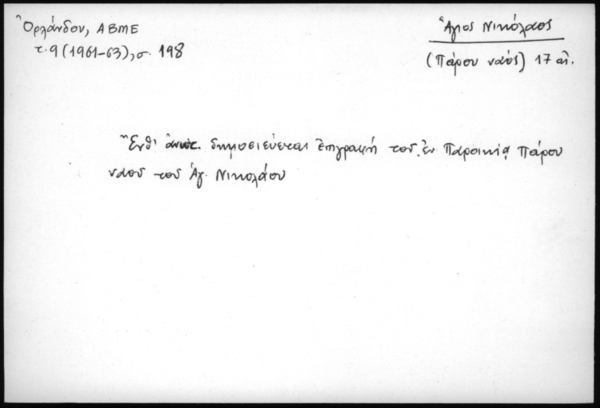 Ὀρλάνδου, ΑΒΜΕ
τ. 9 (1961-63), σ. 198
Ἅγιος Νικόλαος
(Πάρου ναός) 17 αἰ.
Ἔνθ' ἀνωτ. δημοσιεύεται ἐπιγραφή τοῦ ἐν Παροικίᾳ Πάρου
ναοῦ τοῦ Ἁγ. Νικολάου